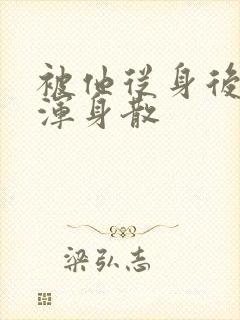 被他从身後
渾身散
梁弘志